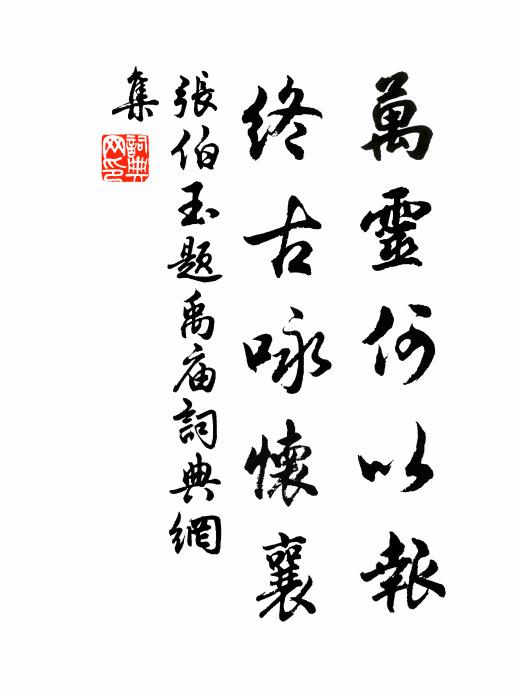 萬靈何以報
終古咏懷襄
張伯玉題禹庙詞典網
集
詞典網印